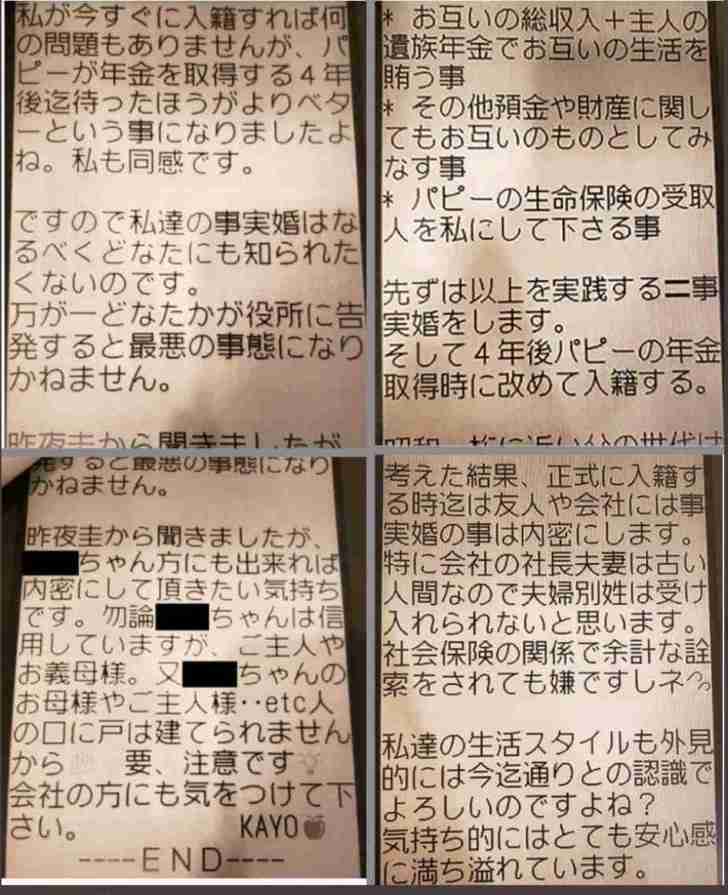 私が今すぐに入籍すれば何
の問題もありませんが、パ
ピーが年金を取得する4年
後迄待ったほうがよりベタ
ーという事になりましたよ
ね。私も同感です。
ですので私達の事実婚はな
るべくどなたにも知られた
くないのです。
万が一どなたかが役所に告
発すると最悪の事態になり
かねません。
昨夜圭から聞きましたが
* お互いの総収入+主人の
遺族年金でお互いの生活を
賄う事
* その他預金や財産に関し
てもお互いのものとしてみ
なす事
* パピーの生命保険の受取
人を私にして下さる事
先ずは以上を実践する=事
実婚をします。
そして4年後パピーの年金
取得時に改めて入籍する。
発すると最悪の事態になり
かねません。
昨夜圭から聞きましたが、
ちゃん方にも出来れば
内密にして頂きたい気持ち
です。勿論 ちゃんは信
用していますが、ご主人や
お義母様。又 ちゃんの
お母様やご主人様‥etc人
の口に戸は建てられません
から 要、注意です
会社の方にも気をつけて下
さい。 KAYO🍎
----END----
考えた結果、正式に入籍す
る時迄は友人や会社には事
実婚の事は内密にします。
特に会社の社長夫妻は古い
人間なので夫婦別姓は受け
入れられないと思います。
社会保険の関係で余計な詮
索をされても嫌ですしネ
私達の生活スタイルも外見
的には今迄通りとの認識で
よろしいのですよね?
気持ち的にはとても安心感
に満ち溢れています。